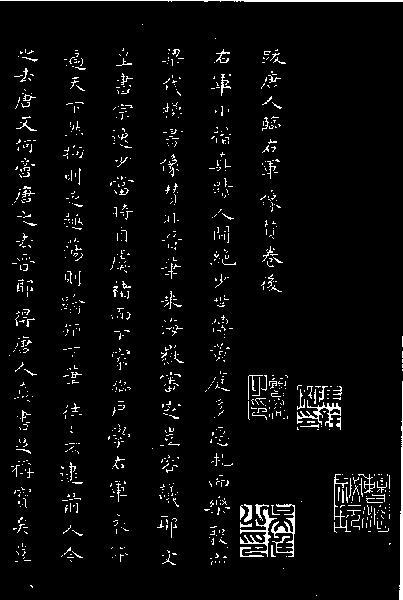 跋唐人臨右軍像贊卷後
右軍小楷真跡人間絕少世傳黃庭多惡札而樂毅亦
梁代摸書像贊外吾華來海嶽審定豈容議耶文
皇書宗逸少當時自虞褚而下家臨戶學右軍衣
遍天下然拘則乏趣蕩則踰下筆往々不逮前人今
之去唐又何啻唐之去晉耶得唐人真書足稱寶矣